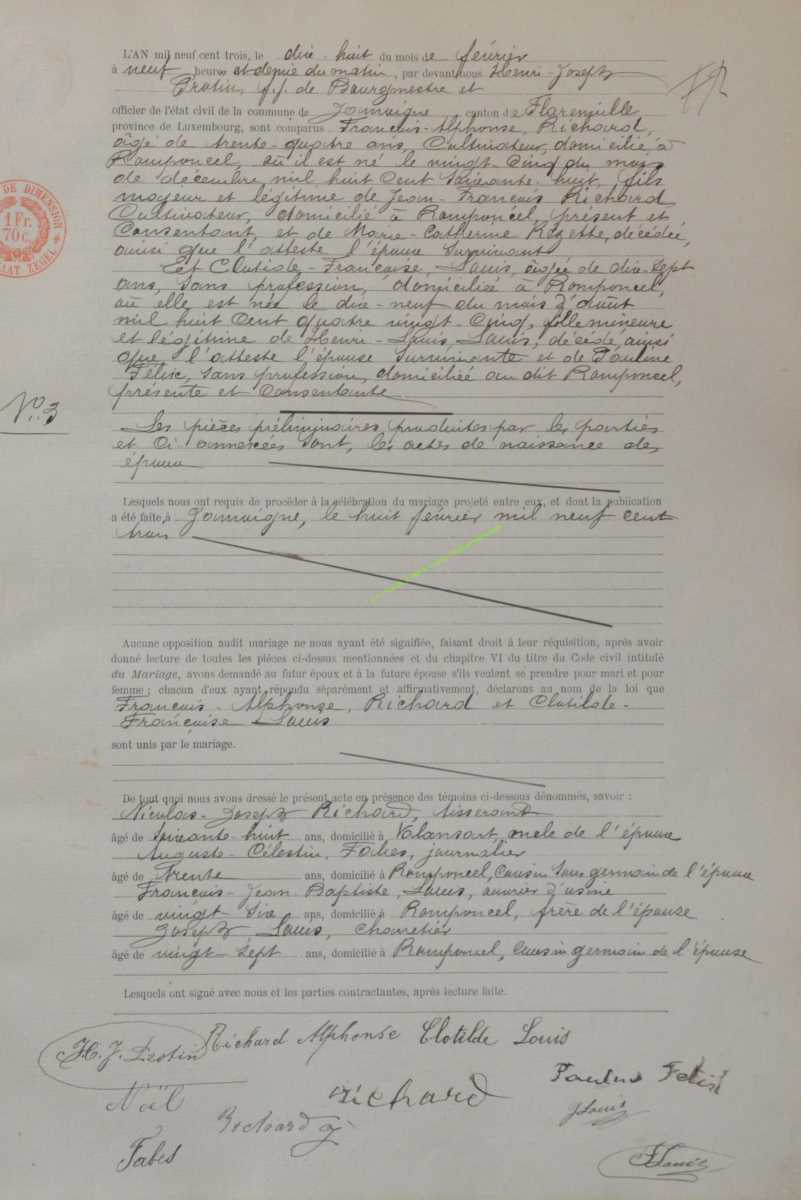 L'AN mil neuf cent trois, le dix huit du mois de février
à neuf heures et demie du matin, par devant nous Henri-Joseph
f.f. de Bourgmestre et
officier de l'état civil de la commune de Jamoigne, canton de Florenville
province de Luxembourg, sont comparus François-Alphonse, Richard,
âgé de trente-quatre ans, Cultivateur, domicilié à
Romponcel, où il est né le vingt-cinq du mois
de décembre mil huit cent soixante huit, fils
majeur et légitime de Jean-François Richard
Cultivateur, domicilié à Romponcel, présent et
Consentant, et de Marie-Catherine Rézette, décédée,
ainsi que l'atteste l'époux survivant
Et Clotilde-Françoise, Louis, âgée de dix-sept
ans, sans profession, domiciliée à Romponcel,
où elle est née le dix-neuf du mois d'août
mil huit cent quatre vingt-cinq, fille mineure
et légitime de Henri-Louis, Louis, décédé, ainsi
que l'atteste l'épouse survivante et de Pauline
Félix, sans profession, domiciliée au dit Romponcel,
présente et consentante
N° 3
Les pièces préliminaires, produites par les parties
et ci annexées sont, les actes de naissance des
époux
Lesquels nous ont requis de procéder à la célébration du mariage projeté entre eux, et dont la publication
a été faite, à Jamoigne, le huit février mil neuf cent
trois
Aucune opposition audit mariage ne nous ayant été signifiée, faisant droit à leur réquisition, après avoir
donné lecture de toutes les pièces ci-dessus mentionnées et du chapitre VI du titre du Code civil intitulé
du Mariage, avons demandé au futur époux et à la future épouse s'ils veulent se prendre pour mari et pour
femme ; chacun d'eux ayant répondu séparément et affirmativement, déclarons au nom de la loi que
François-Alphonse, Richard et Clotilde-
Françoise Louis
sont unis par le mariage.
De tout quoi nous avons dressé le présent acte en présence des témoins ci-dessous dénommés, savoir :
Nicolas-Joseph Richard, tisserand
âgé de soixante huit ans, domicilié à Valansart, oncle de l'époux
Auguste-Célestin, Fabes, journalier
âgé de trente ans, domicilié à Romponcel, cousin sous germain de l'époux
François-Jean Baptiste, Louis, ouvrier d'usine
âgé de vingt six ans, domicilié à Romponcel, frère de l'épouse
Joseph Louis, charretier
âgé de vingt-sept ans, domicilié à Romponcel, cousin germain de l'épouse
Lesquels ont signé avec nous et les parties contractantes, après lecture faite.
Richard Alphonse Clotilde Louis
H. J.
Richard
Pauline Félix
Noël
Richard J
J Louis
Fabes
F Louis
DE DIMENSION
1 Fr.
70 c.
ZEGEL